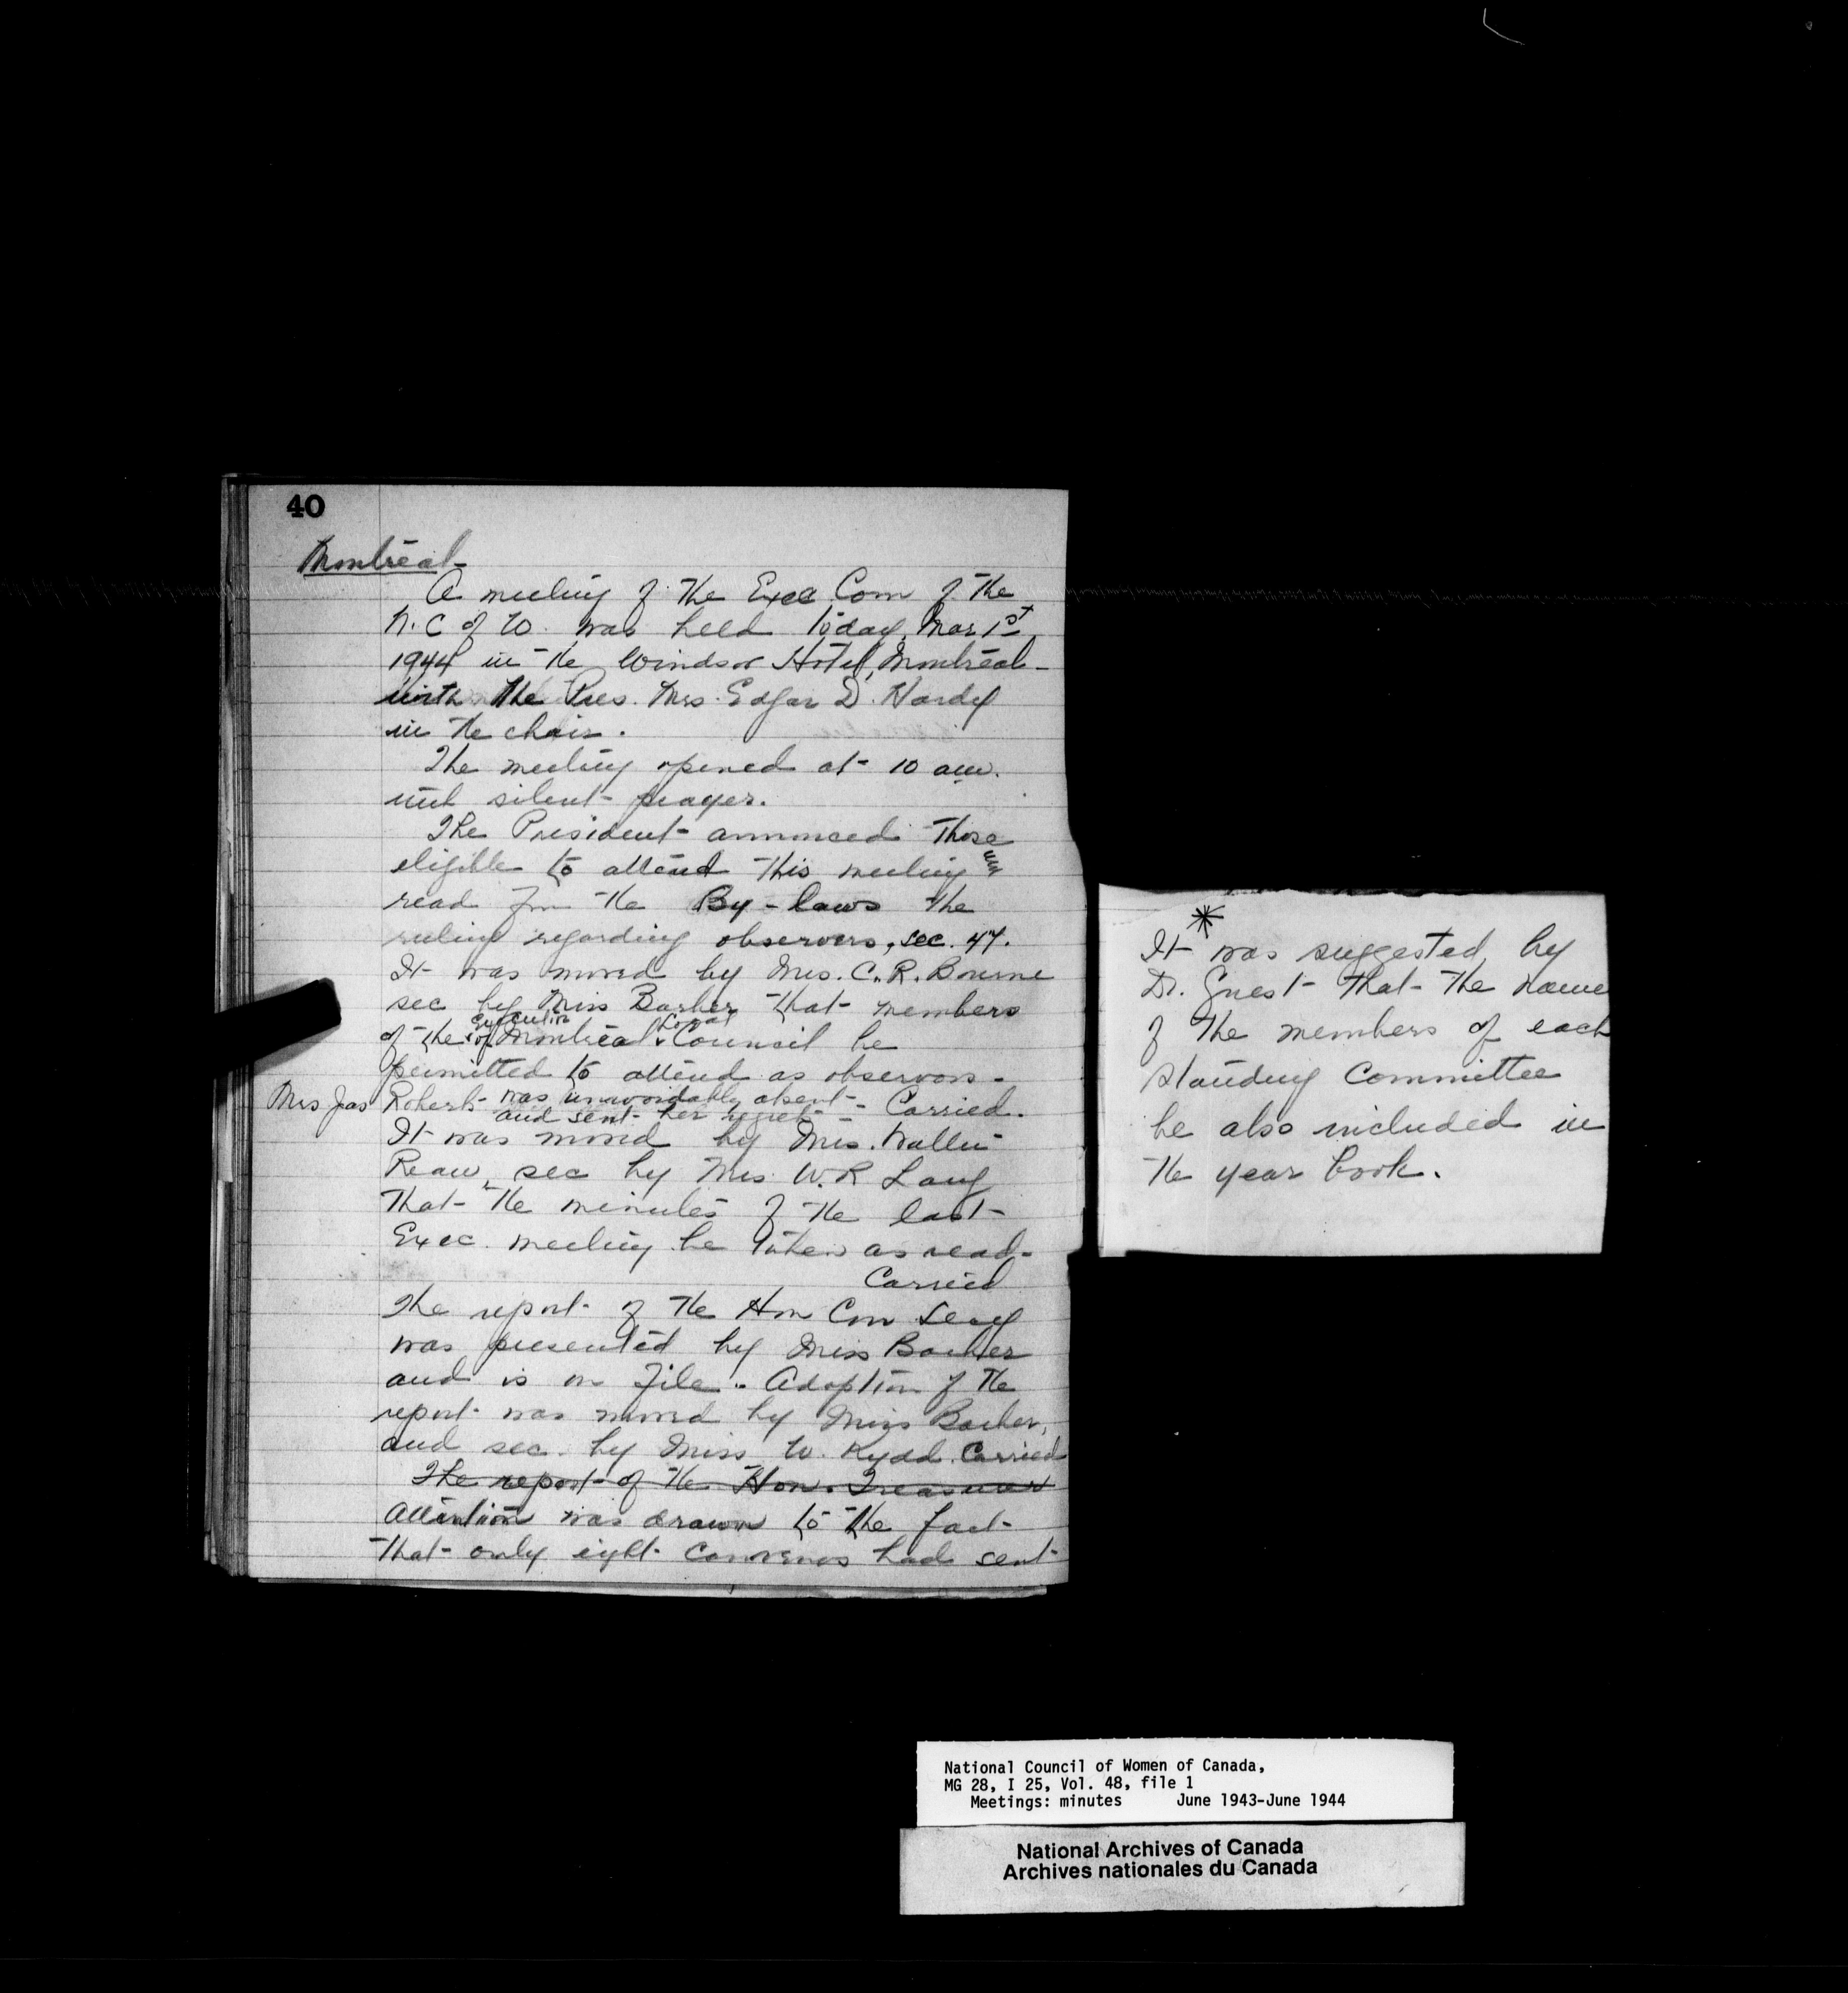 40
Montreal-
A meeting of the Exec Com of the
N. C of W. was held today, Mar 1st
1944 in the Windsor Hotel, Montreal-
with the Pres. Mrs. Edgar D. Hardy
in the chair.
The meeting opened at 10 am.
with silent prayer.
The President announced those
eligible to attend this meeting
read from the By-laws the
ruling regarding observers, sec. 47.
It was moved by Mrs. C. R. Bourne
sec by Miss Barber that members
executive Local
of the of Montreal Council be
permitted to attend as observers-
Mrs Jas Roberts was unavoidably absent - Carried.
and sent her regret
It was moved by Mrs.
sec by Mrs W. R Lang
that the minutes of the last
Exec. meeting be taken as read-
Carried
The report of the Hon Corr Secy
was presented by Miss Barber
and is on file. Adoption of the
report was moved by Miss Barber,
and sec. by Miss W. Kydd. Carried
The report of the Hon. Treasurer
Attention was drawn to the fact
that only eight convenors had sent
*
It was suggested by
Dr. Guest that the name
of the members of each
standing Committee
be also included in
the year book.
National Council of Women of Canada,
MG 28, I 25, Vol. 48, file 1
Meetings: minutes June 1943-June 1944
National Archives of Canada
Archives nationales du Canada